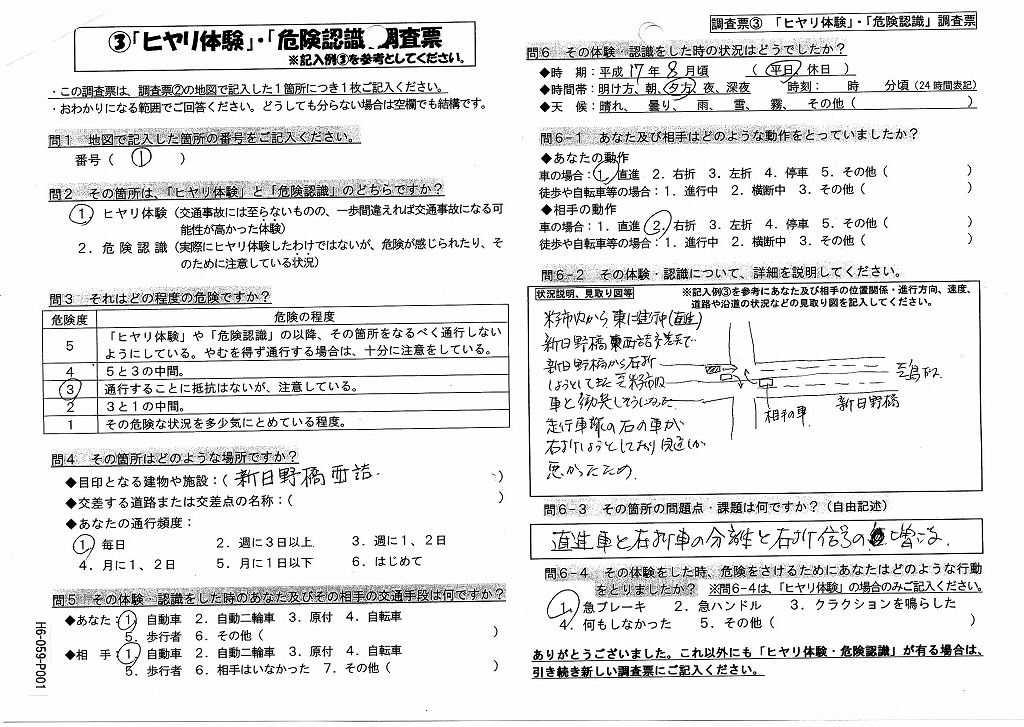 ③「ヒヤリ体験」・「危険認識」調査票
※記入例③を参考としてください。
・この調査票は、調査票②の地図で記入した1箇所につき1枚ご記入ください。
・おわかりになる範囲でご回答ください。どうしても分らない場合は空欄でも結構です。
問1 地図で記入した箇所の番号をご記入ください。
番号( 1 )
問2 その箇所は、「ヒヤリ体験」と「危険認識」のどちらですか?
1. ヒヤリ体験(交通事故には至らないものの、一歩間違えれば交通事故になる可
能性が高かった体験)
2.危険認識(実際にヒヤリ体験したわけではないが、危険が感じられたり、そ
のために注意している状況)
問3 それはどの程度の危険ですか?
危険度 危険の程度
5 「ヒヤリ体験」や「危険認識」の以降、その箇所をなるべく通行しない
ようにしている。やむを得ず通行する場合は、十分に注意をしている。
4 5と3の中間。
3 通行することに抵抗はないが、注意している。
2 3と1の中間。
1 その危険な状況を多少気にとめている程度。
問4 その箇所はどのような場所ですか?
◆目印となる建物や施設:( 新日野橋西詰 )
◆交差する道路または交差点の名称:( )
◆あなたの通行頻度:
1. 毎日 2.週に3日以上 3.週に1、2日
4.月に1、2日 5.月に1日以下 6.はじめて
問5 その体験・認識をした時のあなた及びその相手の交通手段は何ですか?
◆あなた:1. 自動車 2.自動二輪車 3.原付 4.自転車
5.歩行者 6.その他( )
◆相 手:1. 自動車 2.自動二輪車 3.原付 4.自転車
5.歩行者 6.相手はいなかった 7.その他( )
H6-059-P001
調査票③ 「ヒヤリ体験」・「危険認識」調査票
問6 その体験・認識をした時の状況はどうでしたか?
◆時 期:平成 17 年 8 月頃 ( 平日、休日 )
◆時間帯:明け方、朝、夕方、夜、深夜 時刻: 時 分頃(24時間表記)
◆天 候:晴れ、 曇り、 雨、 雪、 霧、 その他( )
問6-1 あなた及び相手はどのような動作をとっていましたか?
◆あなたの動作
車の場合:1. 直進 2.右折 3.左折 4.停車 5.その他( )
徒歩や自転車等の場合:1.進行中 2.横断中 3.その他( )
◆相手の動作
車の場合:1.直進 2. 右折 3.左折 4.停車 5.その他( )
徒歩や自転車等の場合:1.進行中 2.横断中 3.その他( )
問6-2 その体験・認識について、詳細を説明してください。
状況説明、見取り図等
※記入例③を参考にあなた及び相手の位置関係・進行方向、速度、
道路や沿道の状況などの見取り図を記入してください。
市内から東に進行中(直進)
新日野橋西詰交差点で
新日野橋から右折
しようとした
車と衝突しそうになった
走行車線の右の車が
右折しようとしており見通しが
悪かったため
相手の車
新日野橋
問6-3 その箇所の問題点・課題は何ですか?(自由記述)
直進車と右折車の分離と右折信号の
問6-4 その体験をした時、危険をさけるためにあなたはどのような行動
をとりましたか? ※問6-4は、「ヒヤリ体験」の場合のみご記入ください。
1. 急ブレーキ 2.急ハンドル 3.クラクションを鳴らした
4.何もしなかった 5.その他( )
ありがとうございました。これ以外にも「ヒヤリ体験・危険認識」が有る場合は、
引き続き新しい調査票にご記入ください。